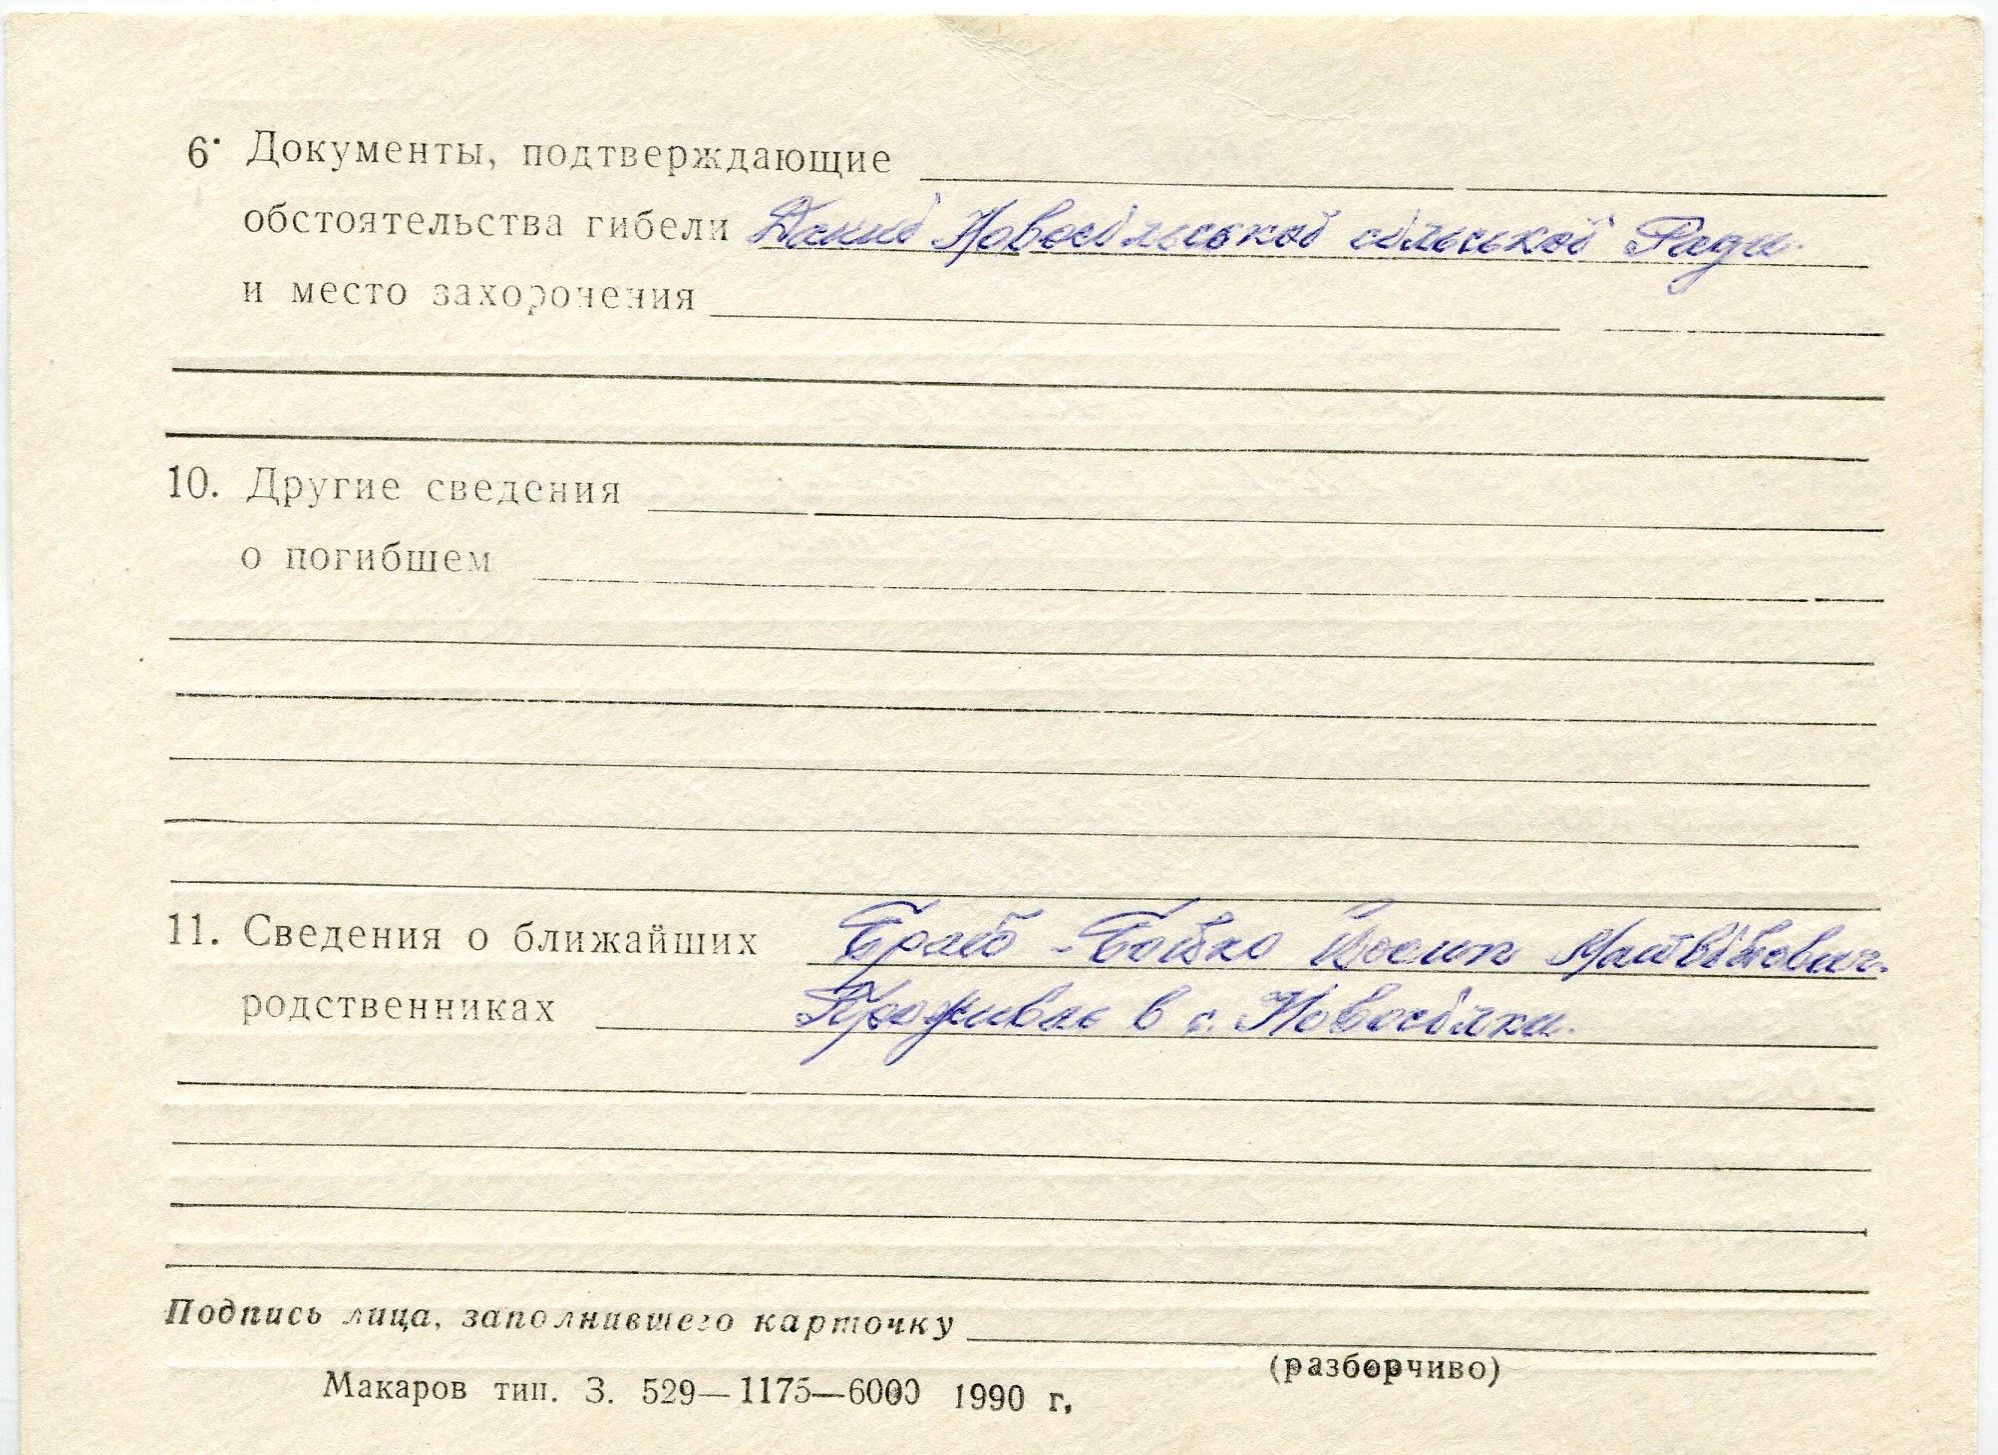 6. Документы, подтверждающие
обстоятельства гибели Данні Новосільської сільської Ради.
и место захоронения
10. Другие сведения
о погибшем
11. Сведения о ближайших Брат - Бойко Йосип Матвійович.
родственниках Проживає в с. Новосілки.
Подпись лица, заполнившего карточку
(разборчиво)
Макаров тип. З. 529—1175—6000 1990 г.